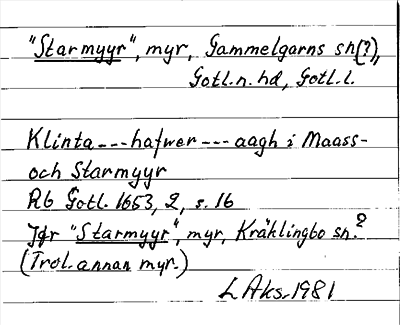 "Starmyyr", myr, Gammelgarns sn(?),
Gotl. n. hd, Gotl. l.
Klinta---hafwer---aagh i Maass-
och Starmyyr
Rb Gotl. 1653, 2, s. 16
Jfr "Starmyyr", myr, Kräklingbo sn?
(Trol. annan myr.)
L Aks. 1981